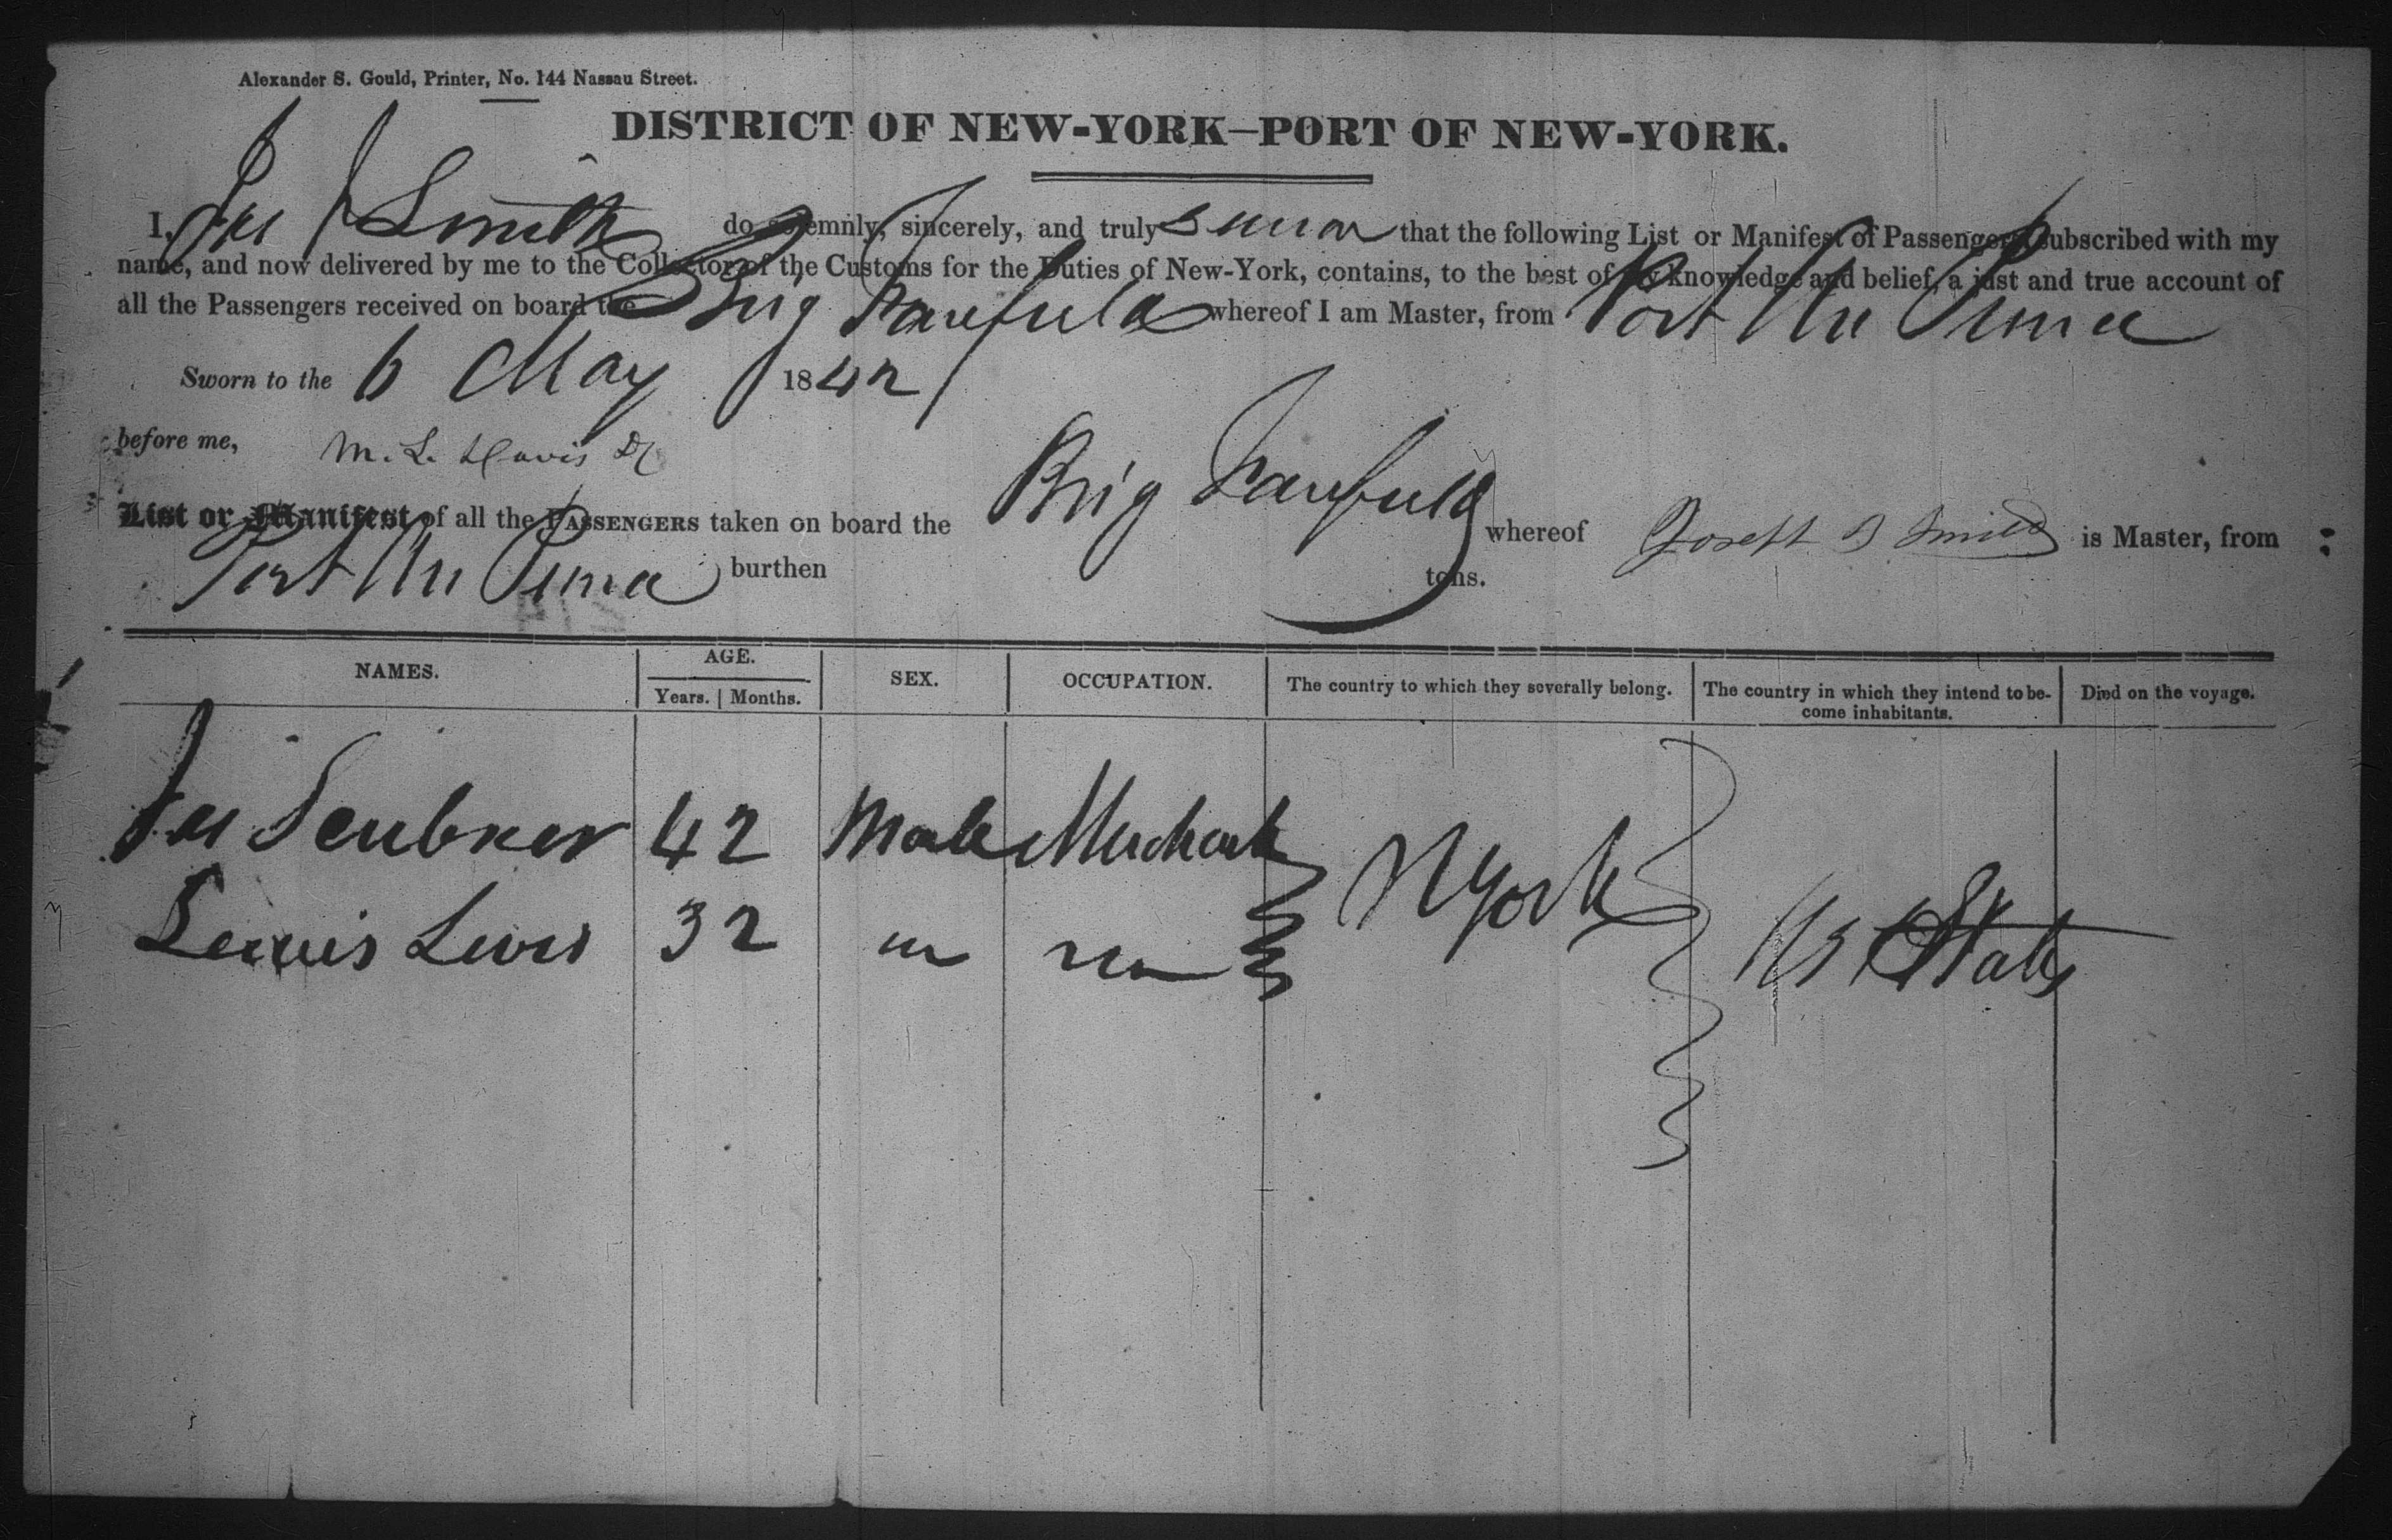 Alexander S. Gould, Printer, No. 144 Nassau Street.
DISTRICT OF NEW-YORK—PORT OF NEW-YORK.
I, Smith do solemnly, sincerely, and truly swear that the following List or Manifest of Passengers, subscribed with my
name, and now delivered by me to the Collector of the Customs for the Duties of New-York, contains, to the best of my knowledge and belief, a just and true account of
all the Passengers received on board the Brig Fairfield whereof I am Master, from Port Au Prince
Sworn to the 6 May 1842
before me, M. L. Davis
List or Manifest of all the PASSENGERS taken on board the Brig Fairfield whereof Joseph Smith is Master, from
Port Au Prince burthen tons.
NAMES. AGE. SEX. OCCUPATION. The country to which they severally belong. The country in which they intend to be- Died on the voyage.
Years. Months. come inhabitants.
42 Male Merchant
Lewis 32
N York
U States